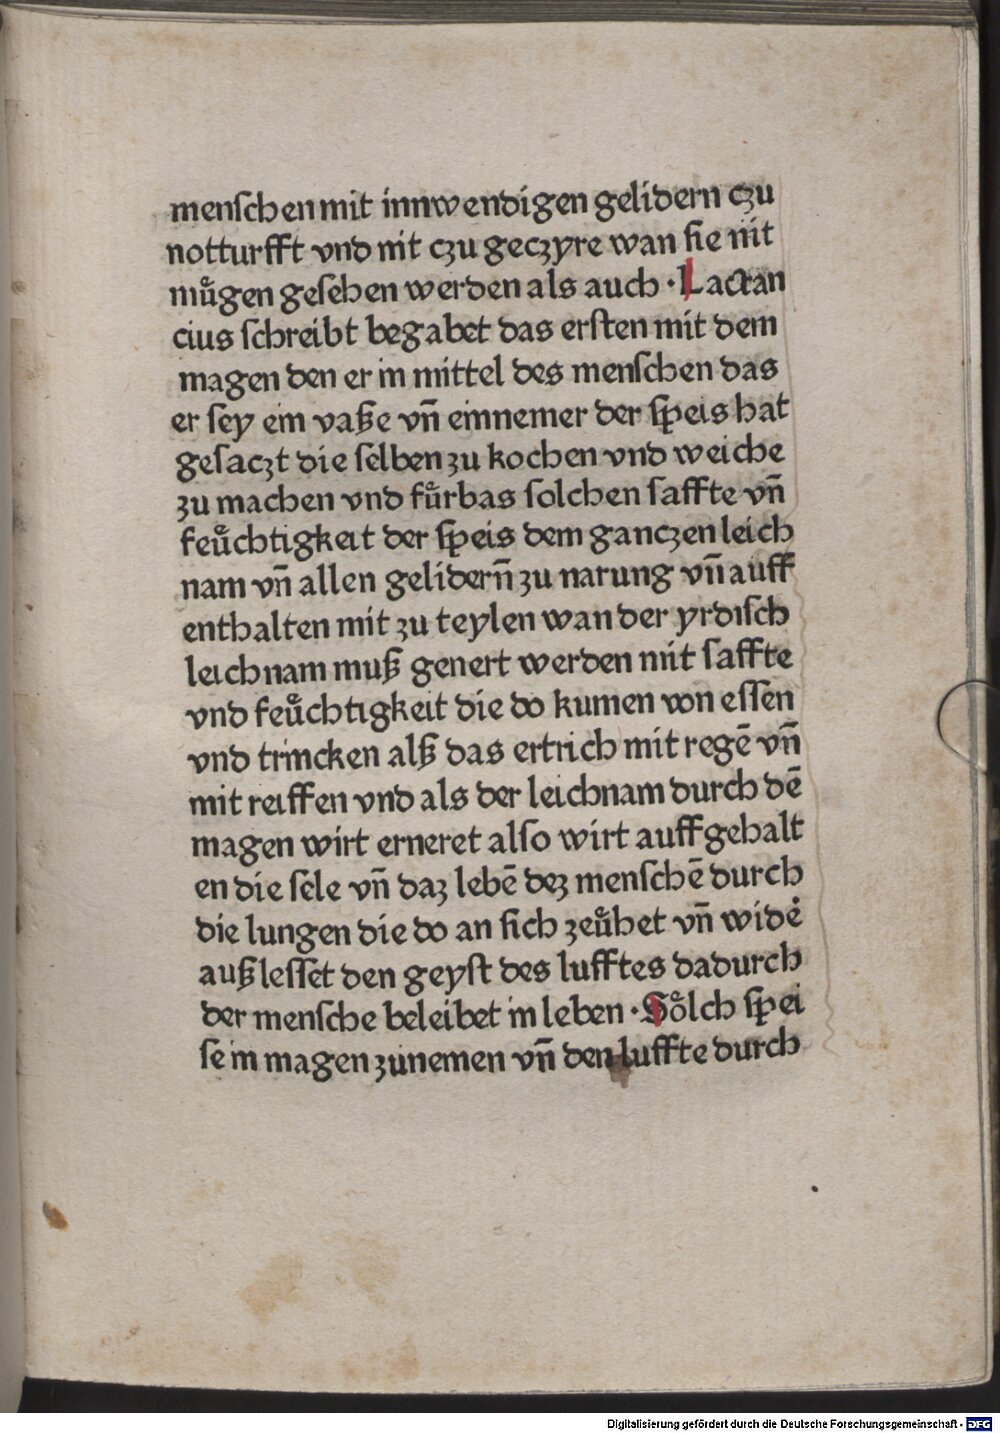 menſchen mit innwendigen gelidern czu
notturfft vnd nit czu geczyre wan ſie nit
mu̎gen geſehen werden als auch · Lactan
cius ſchreibt begabet das erſten mit dem
magen den er in mittel des menſchen das
er ſey ein vaße vn̄ einnemer der ſpeis hat
geſaczt die ſelben zu kochen vnd weiche
zu machen vnd fu̎rbas ſolchen ſaffte vn̄
feu̎chtigkeit der ſpeis dem ganczen leich
nam vn̄ allen gelidern̄ zu narung vn̄ auff
enthalten mit zu teylen wan der yrdiſch
leichnam muß genert werden mit ſaffte
vnd feu̎chtigkeit die do kumen von eſſen
vnd trincken alß das ertrich mit regē vn̄
mit reiffen vnd als der leichnam durch dē
magen wirt erneret alſo wirt auffgehalt
en die ſele vn̄ daz lebē dez menſchē durch
die lungen die do an ſich zeu̎het vn̄ widė
auß leſſet den geyſt des lufftes dadurch
der menſche beleibet in leben · So̎lch ſpei
ſe in magen zunemen vn̄ den luffte durch
Digitalisierung gefördert durch die Deutsche Forschungsgemeinschaft - DFG